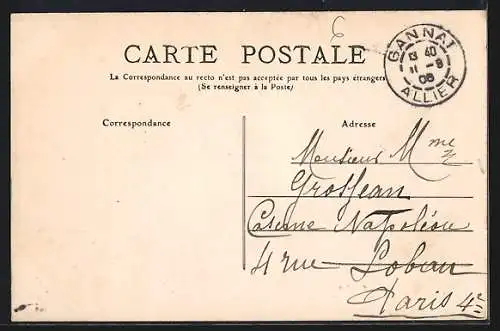 6
CARTE POSTALE
GANNAT
13 40
11 - 8
08
ALLIER
La Correspondance au recto n'est pas acceptée par tous les pays étrangers
(Se renseigner à la Poste)
Correspondance
Adresse
Monsieur Mme
Grosjean
Caserne Napoléon
4 rue Lobau
Paris 4e